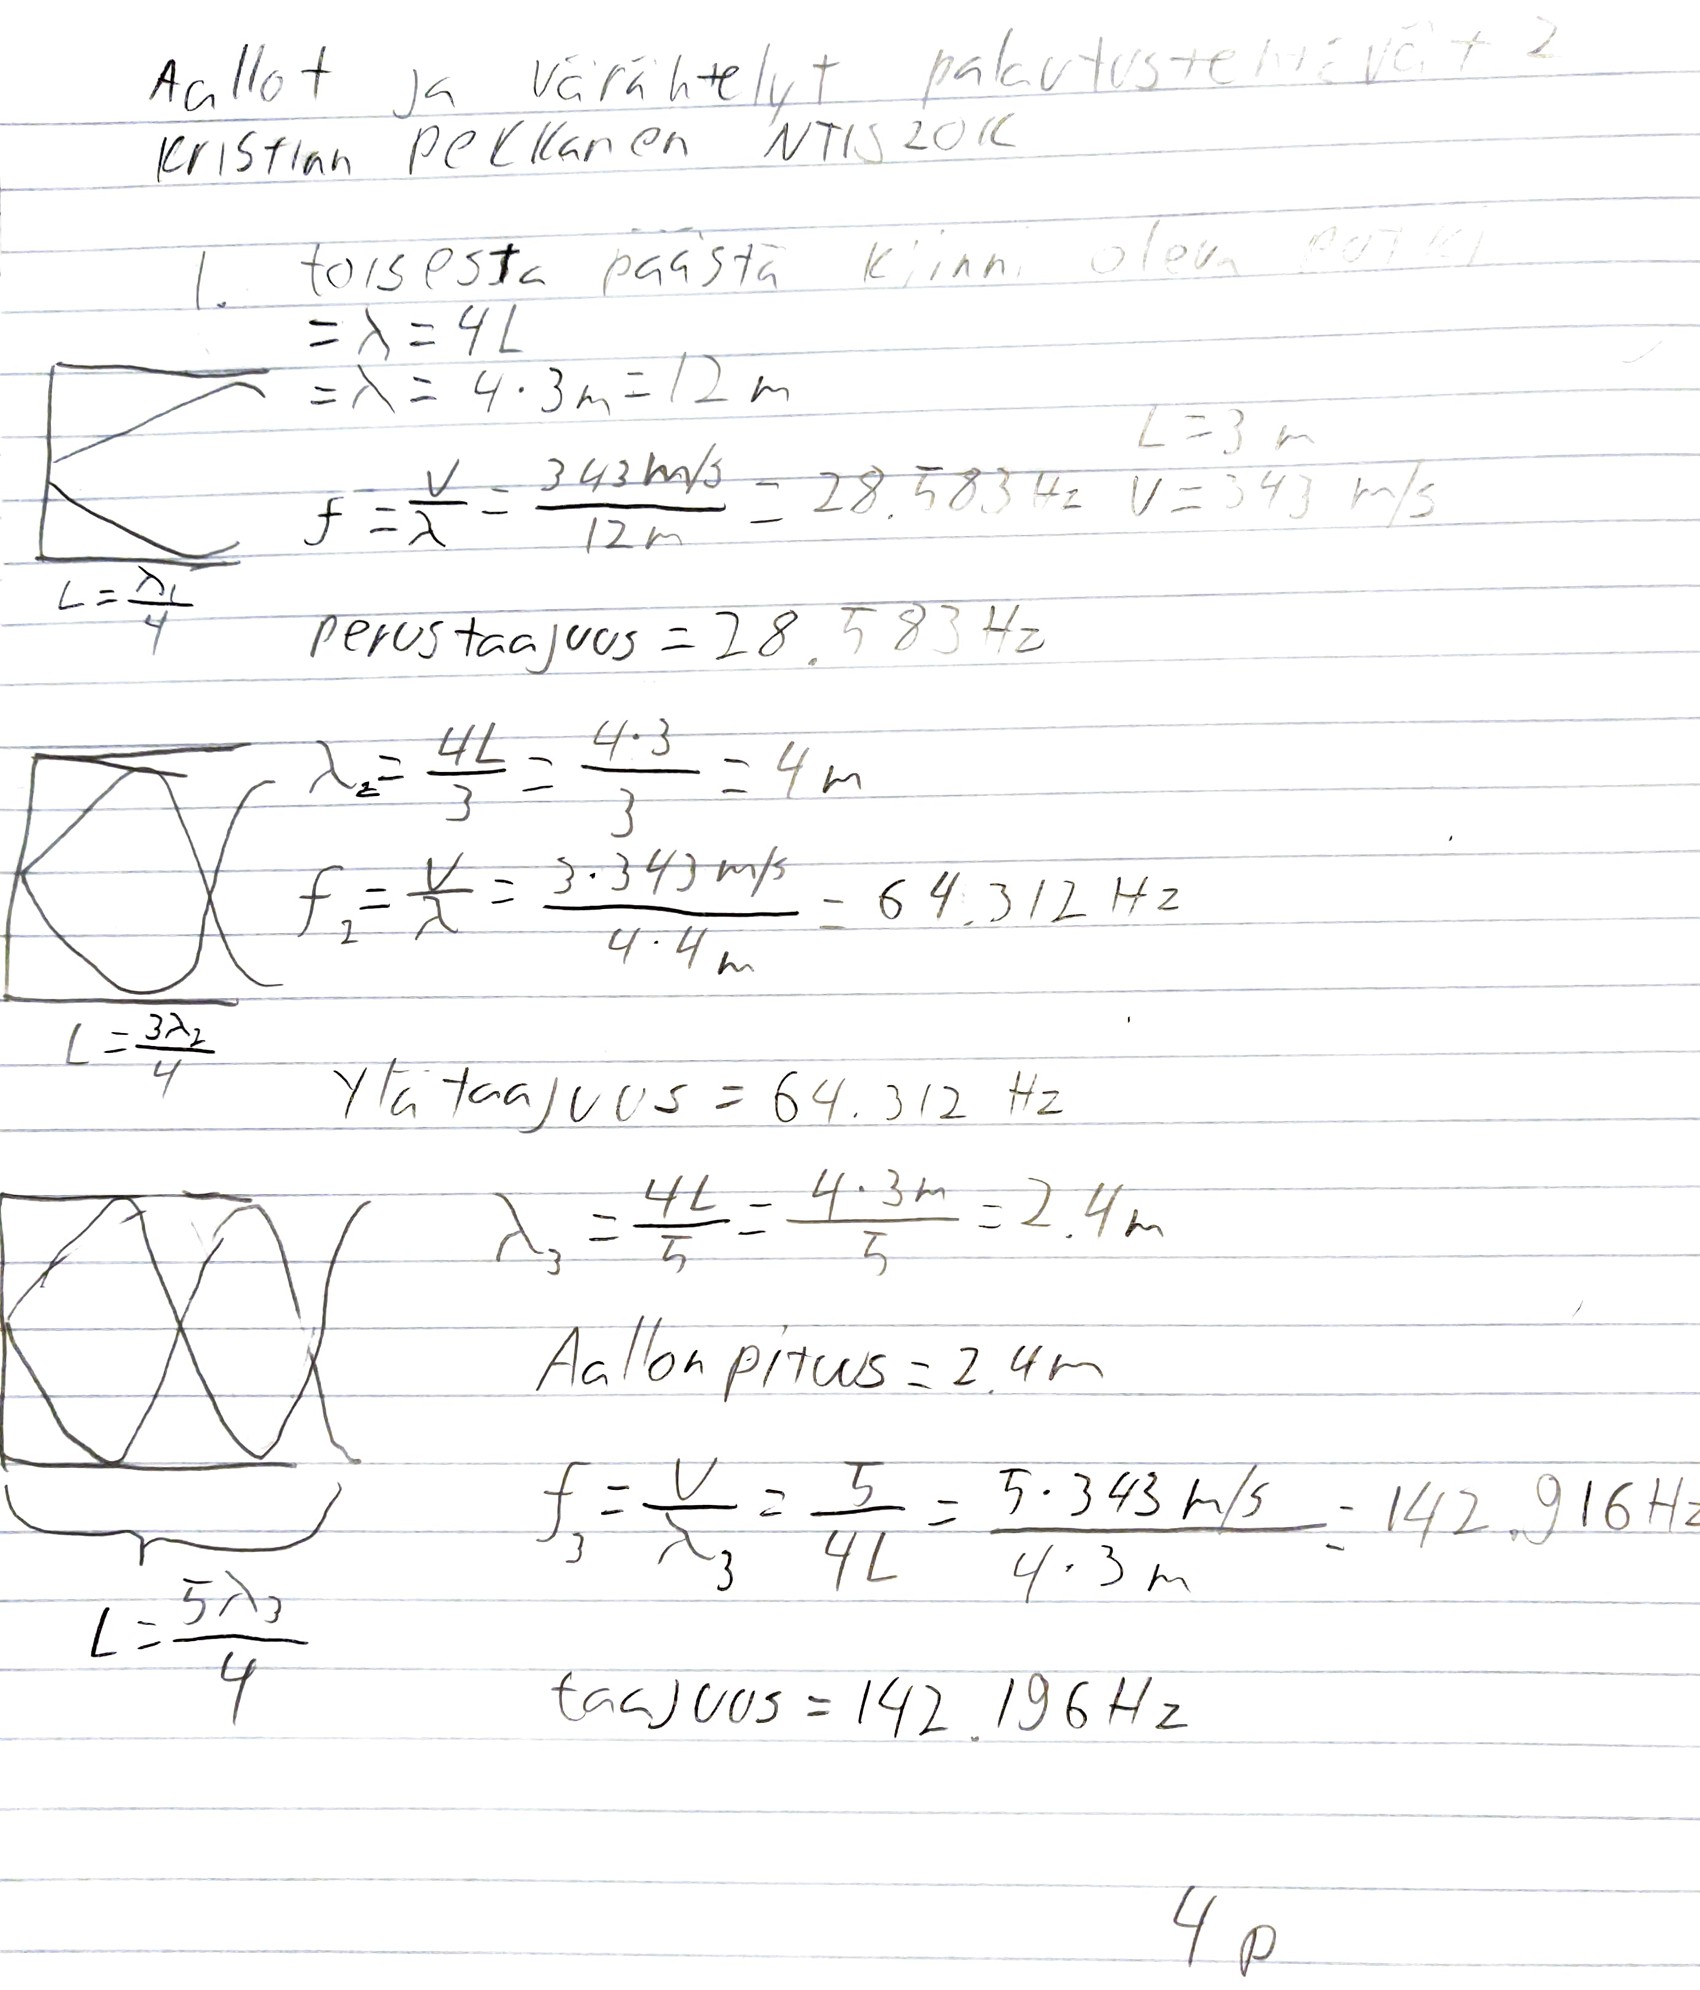 Aallot ja värähtelyt palautustehtävät 2
Kristian Pekkanen NTIS20K
1. toisesta päästä kiinni oleva putki
= λ = 4L
= λ = 4·3m = 12 m
L = 3 m
f = v/λ = 343 m/s / 12 m = 28.583 Hz V = 343 m/s
L = λ1/4
perustaajuus = 28.583 Hz
λ2 = 4L/3 = 4·3/3 = 4 m
f2 = v/λ = 3·343 m/s / 4·4 m = 64.312 Hz
L = 3λ2/4
Ylätaajuus = 64.312 Hz
λ3 = 4L/5 = 4·3m/5 = 2.4 m
Aallonpituus = 2.4 m
f3 = V/λ3 = 5/4L = 5·343 m/s / 4·3 m = 142.916 Hz
L = 5λ3/4
taajuus = 142.196 Hz
4 p